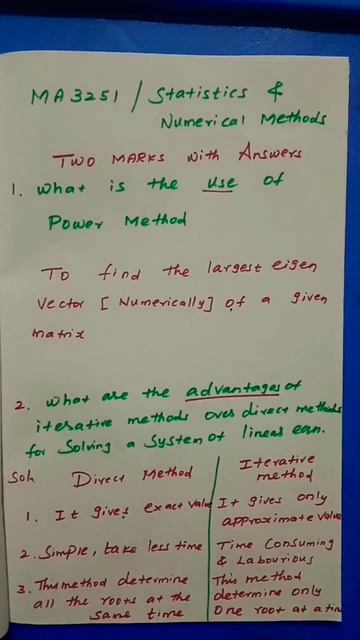 MA3251 / Statistics &
Numerical Methods
TWO MARKS with Answers
1. What is the use of
Power Method
To find the largest eigen
vector [Numerically] of a given
matrix
2. What are the advantages of
iterative methods over direct methods
for solving a system of linear eqn.
Soln. Direct Method
Iterative
method
1. It gives exact value
It gives only
approximate value
2. Simple, take less time
Time Consuming
& Labourious
3. This method determine
all the roots at the
same time
This method
determine only
one root at a time